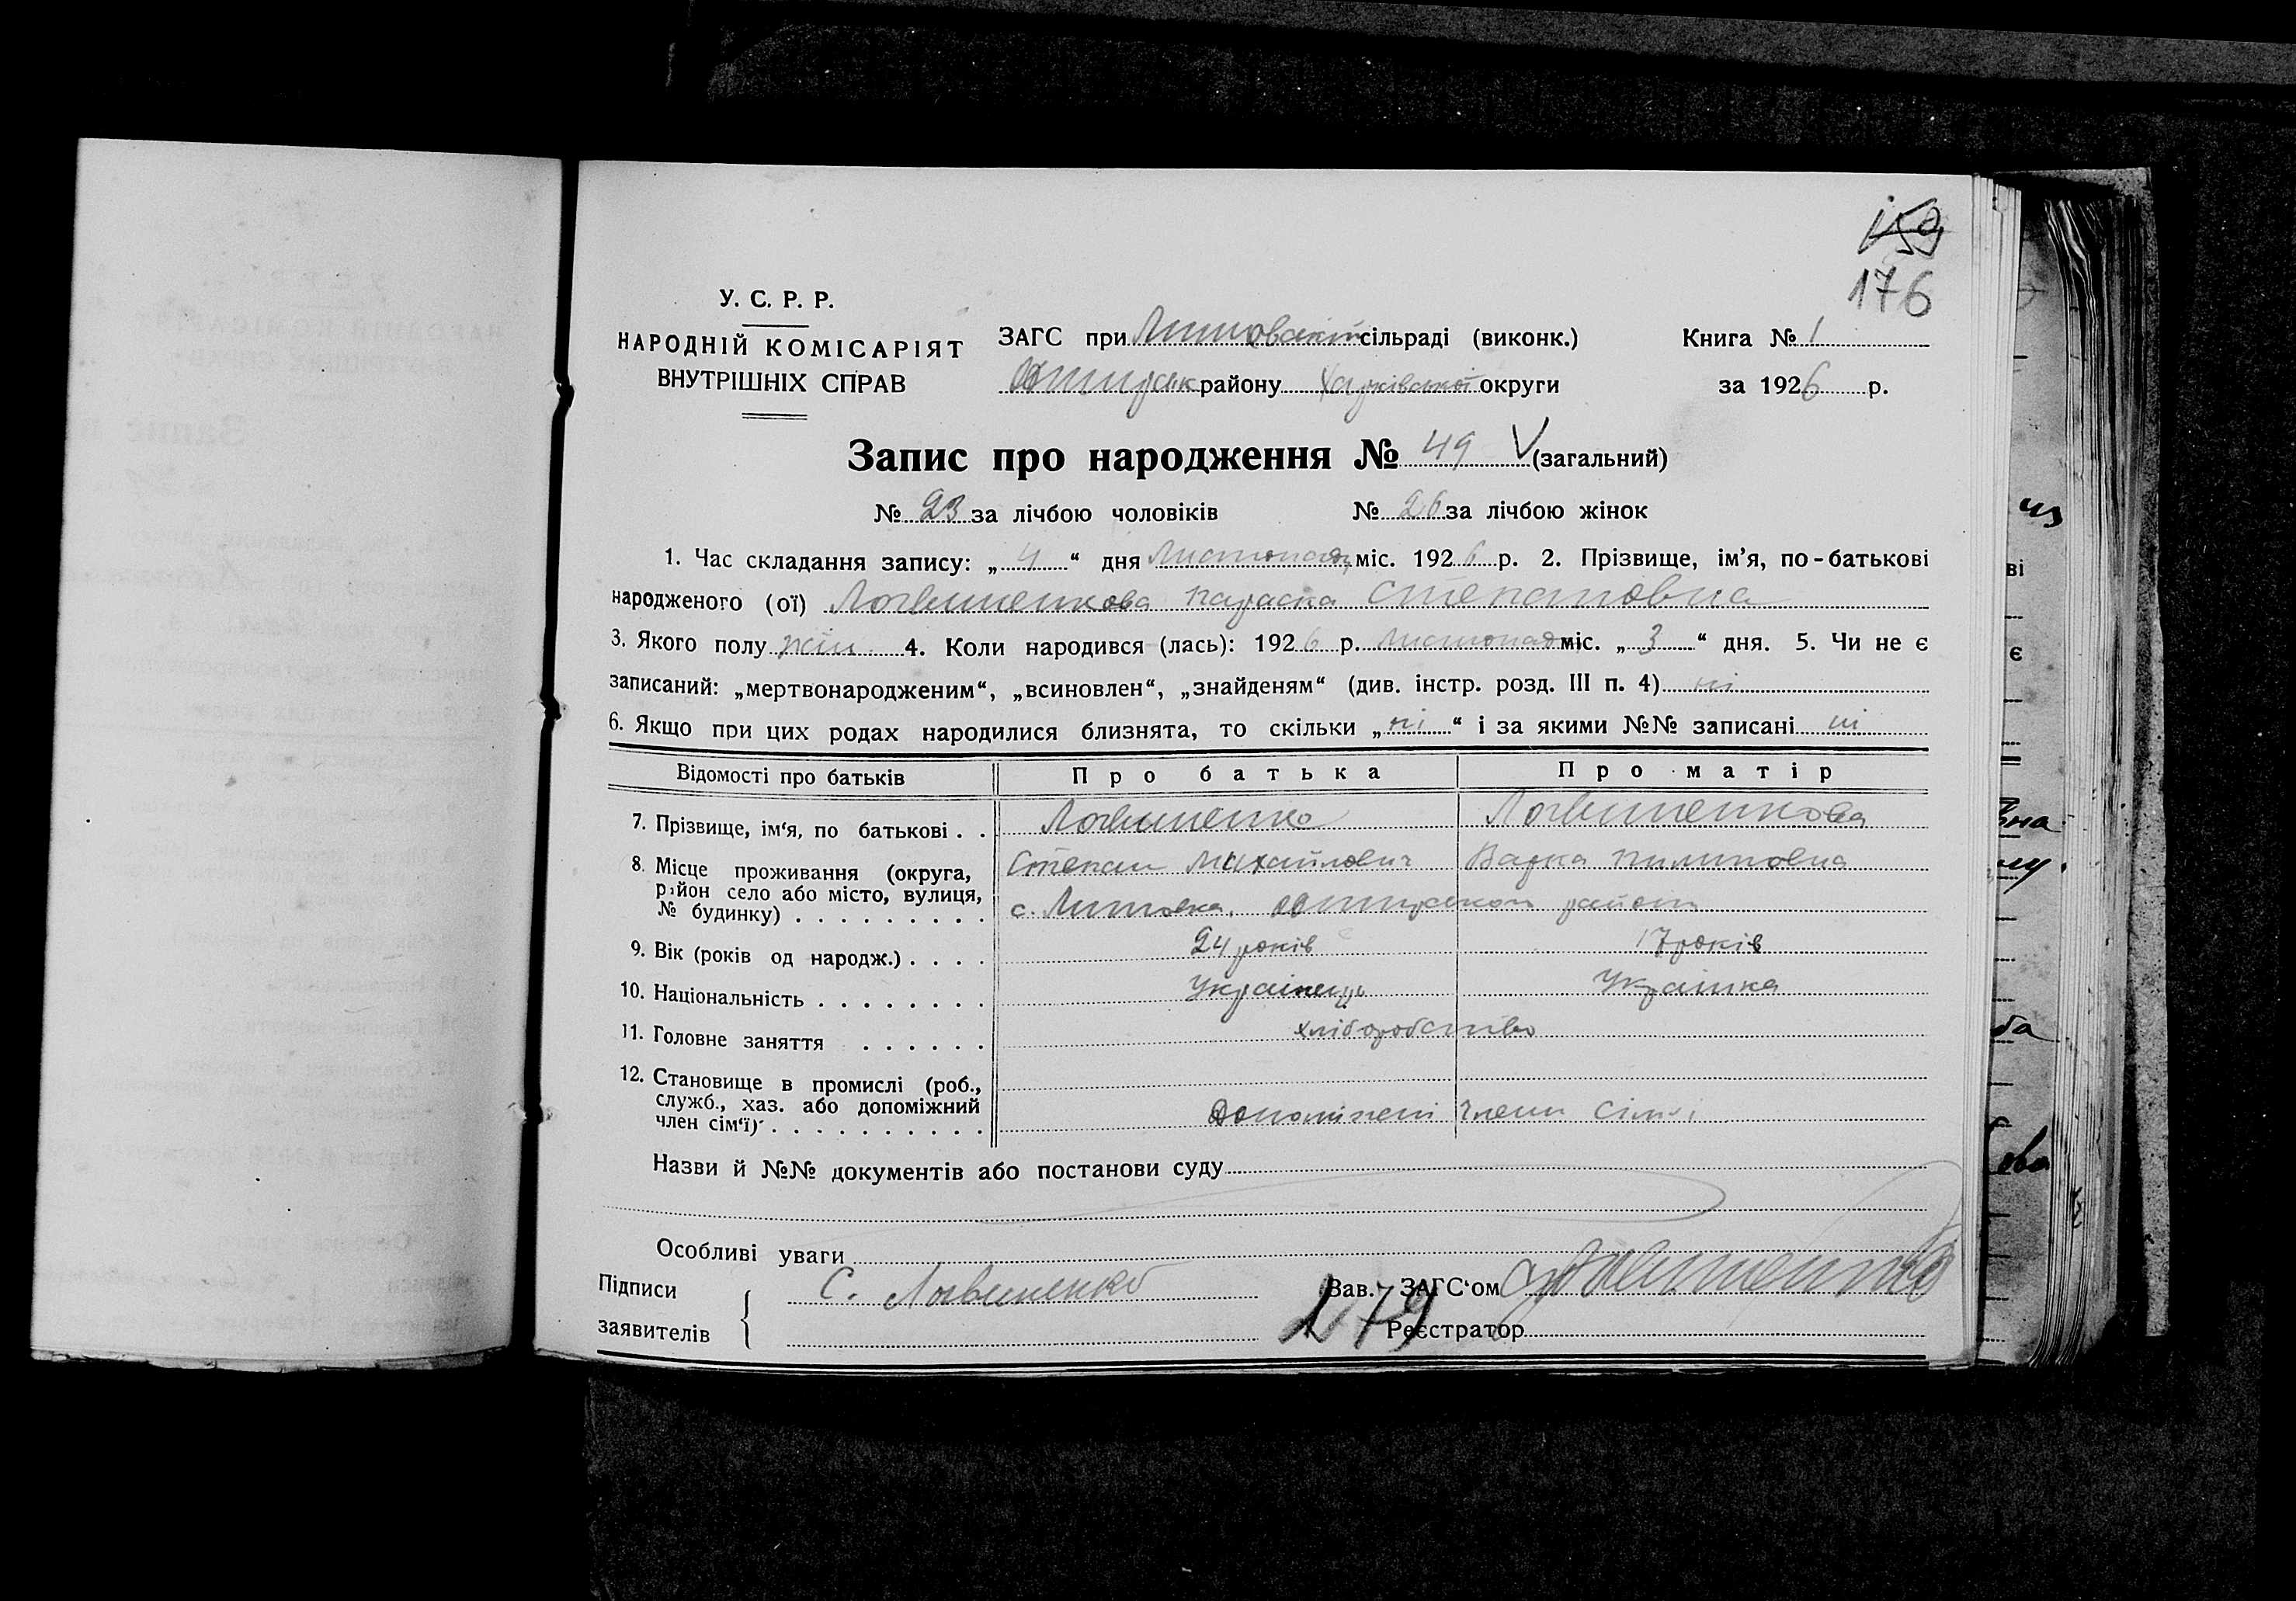 159
176
У. С. Р. Р.
НАРОДНІЙ КОМІСАРІЯТ
ВНУТРІШНІХ СПРАВ
ЗАГС при сільраді (виконк.)
району Харківської округи
Книга № 1
за 1926 р.
Запис про народження № 49 V (загальний)
№ 23 за лічбою чоловіків № 26 за лічбою жінок
1. Час складання запису: „ 4 “ дня Листопада міс. 1926 р. 2. Прізвище, ім’я, по-батькові
народженого (ої) Логвиненкова Параска Степановна
3. Якого полу жін. 4. Коли народився (лась): 1926 р. Листопад міс. „ 3 “ дня. 5. Чи не є
записаний: „мертвонародженим“, „всиновлен“, „знайденям“ (див. інстр. розд. III п. 4) ні
6. Якщо при цих родах народилися близнята, то скільки „ ні “ і за якими №№ записані ні
Відомості про батьків Про батька Про матір
7. Прізвище, ім‘я, по батькові . . Логвиненко Логвиненкова
Степан Михайлович Варка Пилиповна
8. Місце проживання (округа,
район село або місто, вулиця,
№ будинку) . . . . . . . . . с. Литовка,
9. Вік (років од народж.) . . . . 24 років 17 років
10. Національність . . . . . . . . Українець Українка
11. Головне заняття . . . . . . хліборобство
12. Становище в промислі (роб.,
служб., хаз. або допоміжний
член сім‘ї) . . . . . . . . . . Допоміжні члени сімї
Назви й №№ документів або постанови суду
Особливі уваги
Підписи
заявителів
С. Логвиненко
Вав. ЗАГС‘ом
Реєстратор
179
из
ві
є
вна
ба
ова